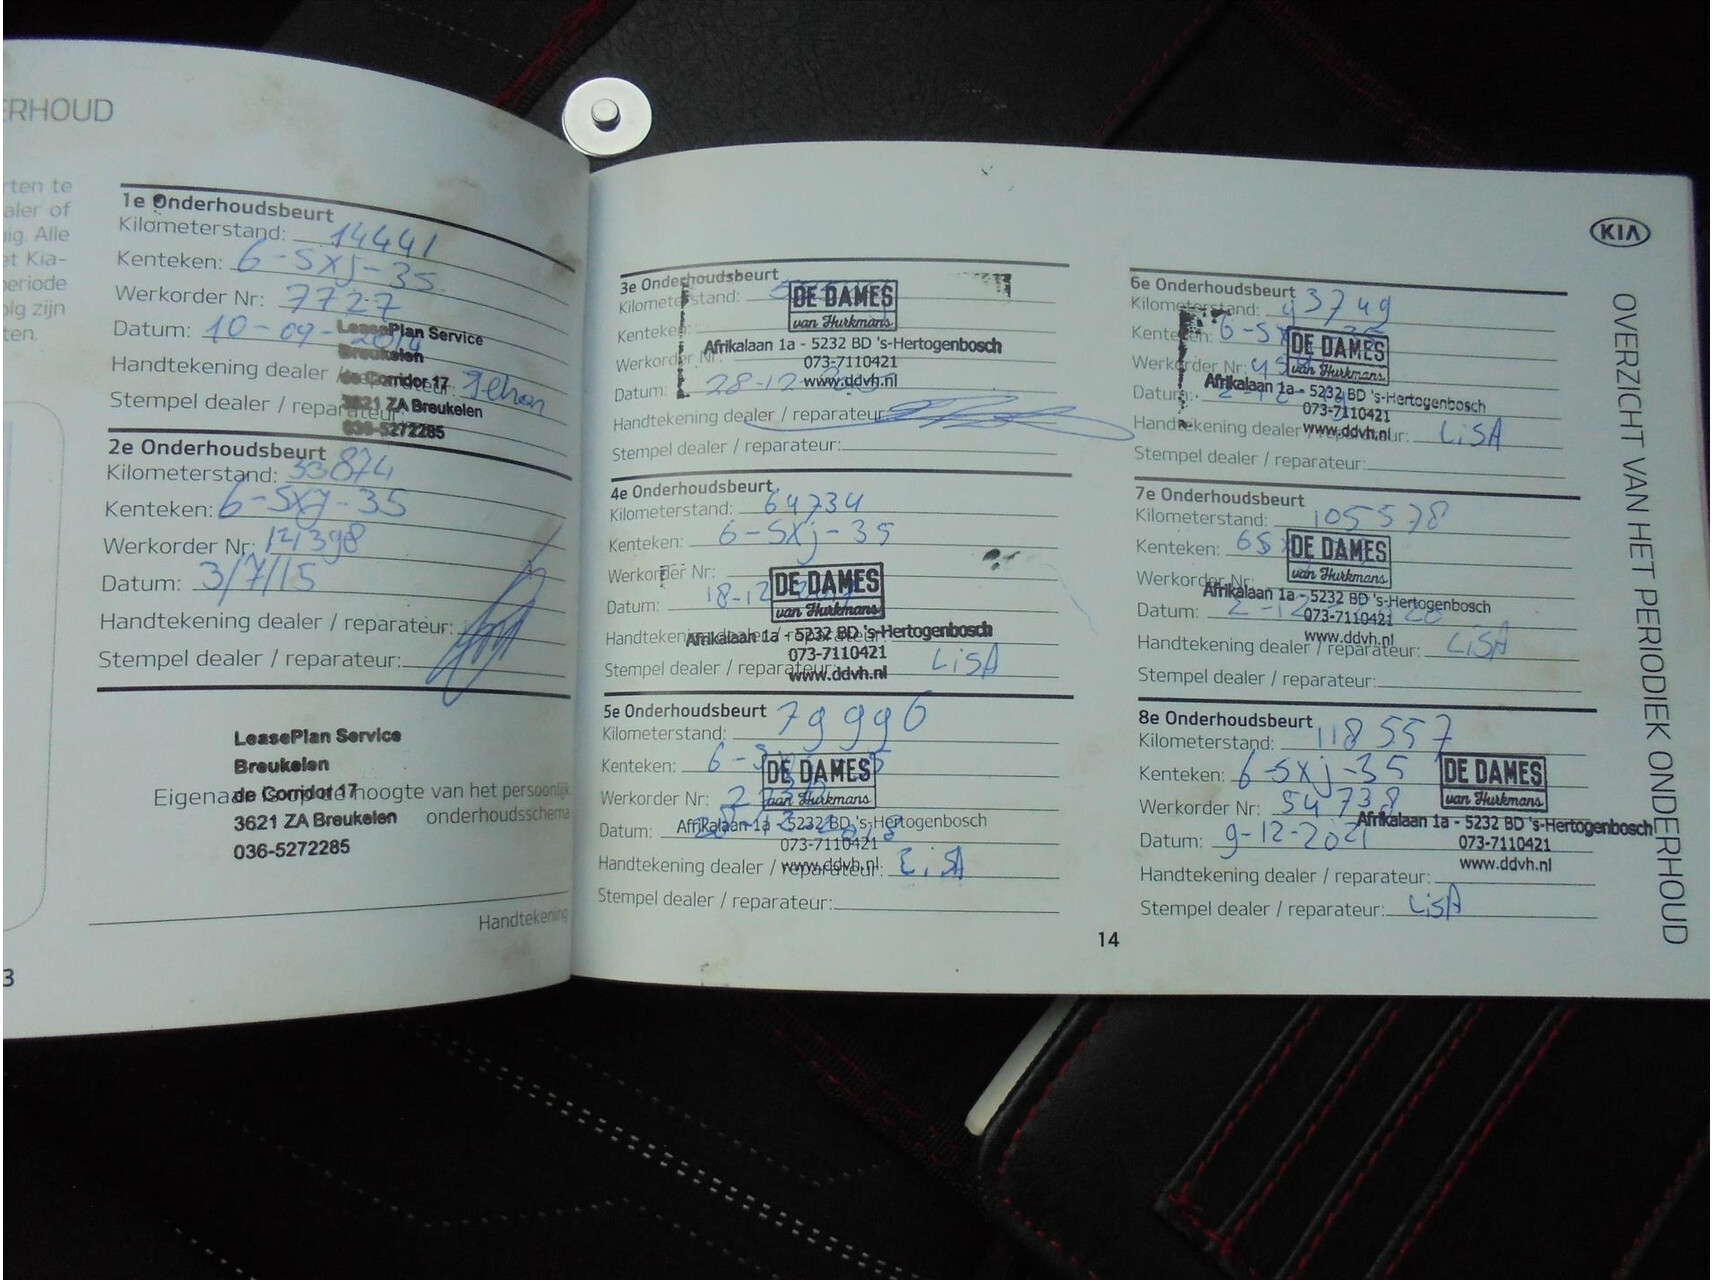 ERHOUD
rten te
aler of
ig. Alle
et Kia-
periode
olg zijn
ten.
1e Onderhoudsbeurt
Kilometerstand: 14441
Kenteken: 6-SXJ-35
Werkorder Nr: 7727
Datum: 10-09-2014
Handtekening dealer
Stempel dealer / reparateur:
LeasePlan Service
Breukelen
de Corridor 17
3621 ZA Breukelen
036-5272285
2e Onderhoudsbeurt
Kilometerstand: 33874
Kenteken: 6-SXJ-35
Werkorder Nr:
Datum: 3/7/15
Handtekening dealer / reparateur:
Stempel dealer / reparateur:
LeasePlan Service
Breukelen
de Corridor 17
3621 ZA Breukelen
036-5272285
Eigenaar is op de hoogte van het persoonlijk
onderhoudsschema
Handtekening
3
3e Onderhoudsbeurt
Kilometerstand:
Kenteken:
Werkorder Nr:
Datum: 28-12
Handtekening dealer / reparateur:
Stempel dealer / reparateur:
DE DAMES
van Hurkmans
Afrikalaan 1a - 5232 BD 's-Hertogenbosch
073-7110421
www.ddvh.nl
4e Onderhoudsbeurt
Kilometerstand: 64734
Kenteken: 6-SXJ-35
Werkorder Nr:
Datum: 18-12
Handtekening dealer / reparateur:
Stempel dealer / reparateur: LiSA
DE DAMES
van Hurkmans
Afrikalaan 1a - 5232 BD 's-Hertogenbosch
073-7110421
www.ddvh.nl
5e Onderhoudsbeurt
Kilometerstand: 79996
Kenteken: 6-S
Werkorder Nr:
Datum:
Handtekening dealer / reparateur: LiSA
Stempel dealer / reparateur:
DE DAMES
van Hurkmans
Afrikalaan 1a - 5232 BD 's-Hertogenbosch
073-7110421
www.ddvh.nl
14
KIA
OVERZICHT VAN HET PERIODIEK ONDERHOUD
6e Onderhoudsbeurt
Kilometerstand: 93749
Kenteken: 6-SX
Werkorder Nr:
Datum:
Handtekening dealer / reparateur: LiSA
Stempel dealer / reparateur:
DE DAMES
van Hurkmans
Afrikalaan 1a - 5232 BD 's-Hertogenbosch
073-7110421
www.ddvh.nl
7e Onderhoudsbeurt
Kilometerstand: 105578
Kenteken: 6S
Werkorder Nr:
Datum: 2-12
Handtekening dealer / reparateur: LiSA
Stempel dealer / reparateur:
DE DAMES
van Hurkmans
Afrikalaan 1a - 5232 BD 's-Hertogenbosch
073-7110421
www.ddvh.nl
8e Onderhoudsbeurt
Kilometerstand: 118557
Kenteken: 6-SXJ-35
Werkorder Nr: 54738
Datum: 9-12-2021
Handtekening dealer / reparateur:
Stempel dealer / reparateur: LiSA
DE DAMES
van Hurkmans
Afrikalaan 1a - 5232 BD 's-Hertogenbosch
073-7110421
www.ddvh.nl